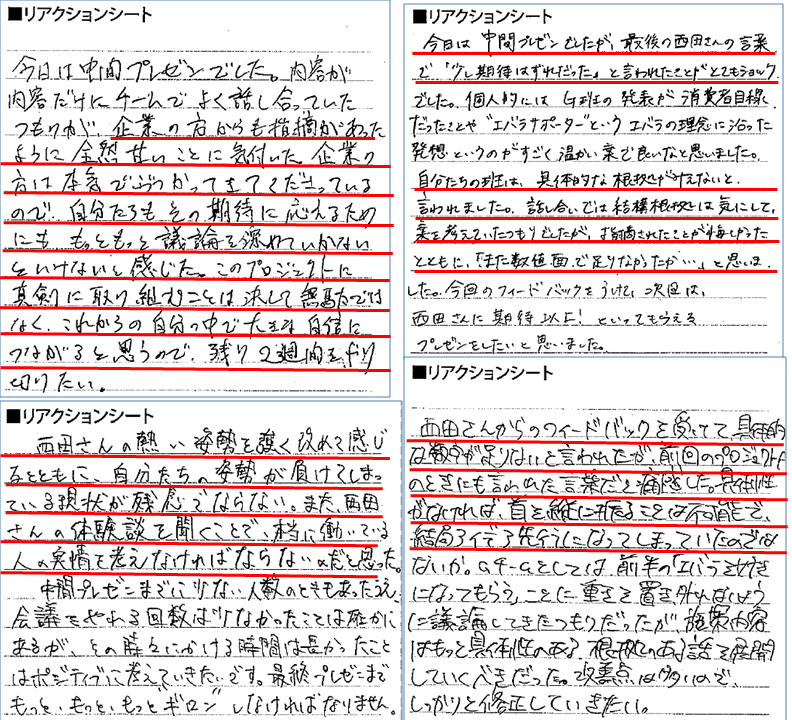 ■リアクションシート
今日は中間プレゼンでした。内容が
内容だけにチームでよく話し合っていた
つもりが、企業の方からも指摘があった
ように全然甘いことに気付いた。企業の
方は本気でぶつかってきてくださっている
ので、自分たちもその期待に応えるため
にも、もっともっと議論を深めていかない
といけないと感じた。このプロジェクトに
真剣に取り組むことは決して無駄では
なく、これからの自分の中で大きな自信に
つながると思うので、残り2週間を、やり
切りたい。
■リアクションシート
今日は中間プレゼンでしたが、最後の西田さんの言葉
で「少し期待はずれだった」と言われたことがとてもショック
でした。個人的にはG班の発表が消費者目線
だったことや"エバラサポーター"というエバラの理念に沿った
発想というのがすごく温かい案で良いなと思いました。
自分たちの班は、具体的な根拠が見えないと
言われました。話し合いでは結構根拠は気にして、
案を考えていたつもりでしたが、指摘されたことが悔しかった
とともに、「まだ数値面で足りなかったか…」と思いま
した。今回のフィードバックをうけて、次回は、
西田さんに期待以上!といってもらえる
プレゼンをしたいと思いました。
■リアクションシート
西田さんの熱い姿勢を強く改めて感じ
るとともに、自分たちの姿勢が負けてしまっ
ている現状が残念でならない。また、西田
さんの体験談を聞くことで、本当に働いている
人の実情を考えなければならないのだと思った。
中間プレゼンまでに少ない人数のときもあったうえ、
会議をやれる回数は少なかったことは確かに
あるが、その時々にかける時間は長かったこと
はポジティブに考えていきたいです。最終プレゼンまで
もっと、もっと、もっと"ギロン"しなければなりません。
■リアクションシート
西田さんからのフィードバックを受けて、具体的
な数字が足りないと言われたが、前回のプロジェクト
のときにも言われた言葉だと痛感した。具体性
がなければ、首を縦に振ることは不可能で、
結局アイデア先行になってしまっていたのでは
ないか。Gチームとしては前半の「エバラを好き
になってもらう」ことに重きを置き外れないよう
に議論してきたつもりだったが、施策内容
はもっと具体性のある、根拠のある話を展開
していくべきだった。改善点は多いので、
しっかりと修正していきたい。